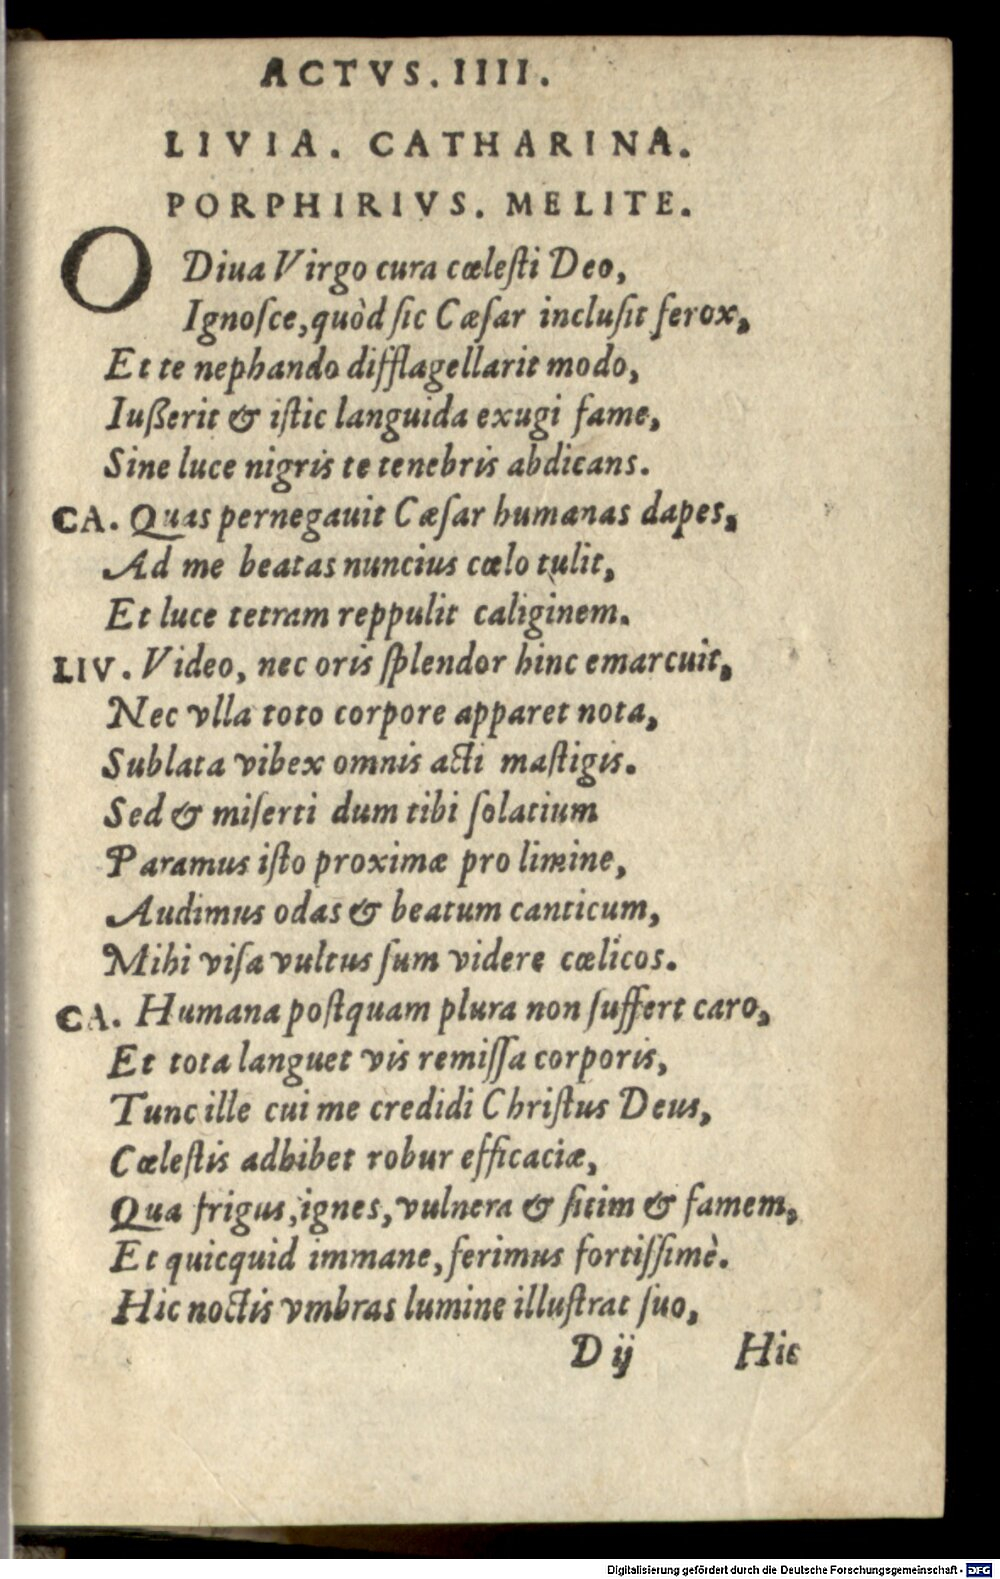 ACTVS. IIII.
LIVIA. CATHARINA.
PORPHIRIVS. MELITE.
O Diua Virgo cura cœlesti Deo,
Ignosce, quòd sic Cæsar inclusit ferox,
Et te nephando difflagellarit modo,
Iußerit & istic languida exugi fame,
Sine luce nigris te tenebris abdicans.
CA. Quas pernegauit Cæsar humanas dapes,
Ad me beatas nuncius cœlo tulit,
Et luce tetram reppulit caliginem.
LIV. Video, nec oris splendor hinc emarcuit,
Nec vlla toto corpore apparet nota,
Sublata vibex omnis acti mastigis.
Sed & miserti dum tibi solatium
Paramus isto proximæ pro limine,
Audimus odas & beatum canticum,
Mihi visa vultus sum videre cœlicos.
CA. Humana postquam plura non suffert caro,
Et tota languet vis remissa corporis,
Tunc ille cui me credidi Christus Deus,
Cœlestis adhibet robur efficaciæ,
Qua frigus, ignes, vulnera & sitim & famem,
Et quicquid immane, ferimus fortissimè.
Hic noctis vmbras lumine illustrat suo,
D ij Hic
Digitalisierung gefördert durch die Deutsche Forschungsgemeinschaft - DFG